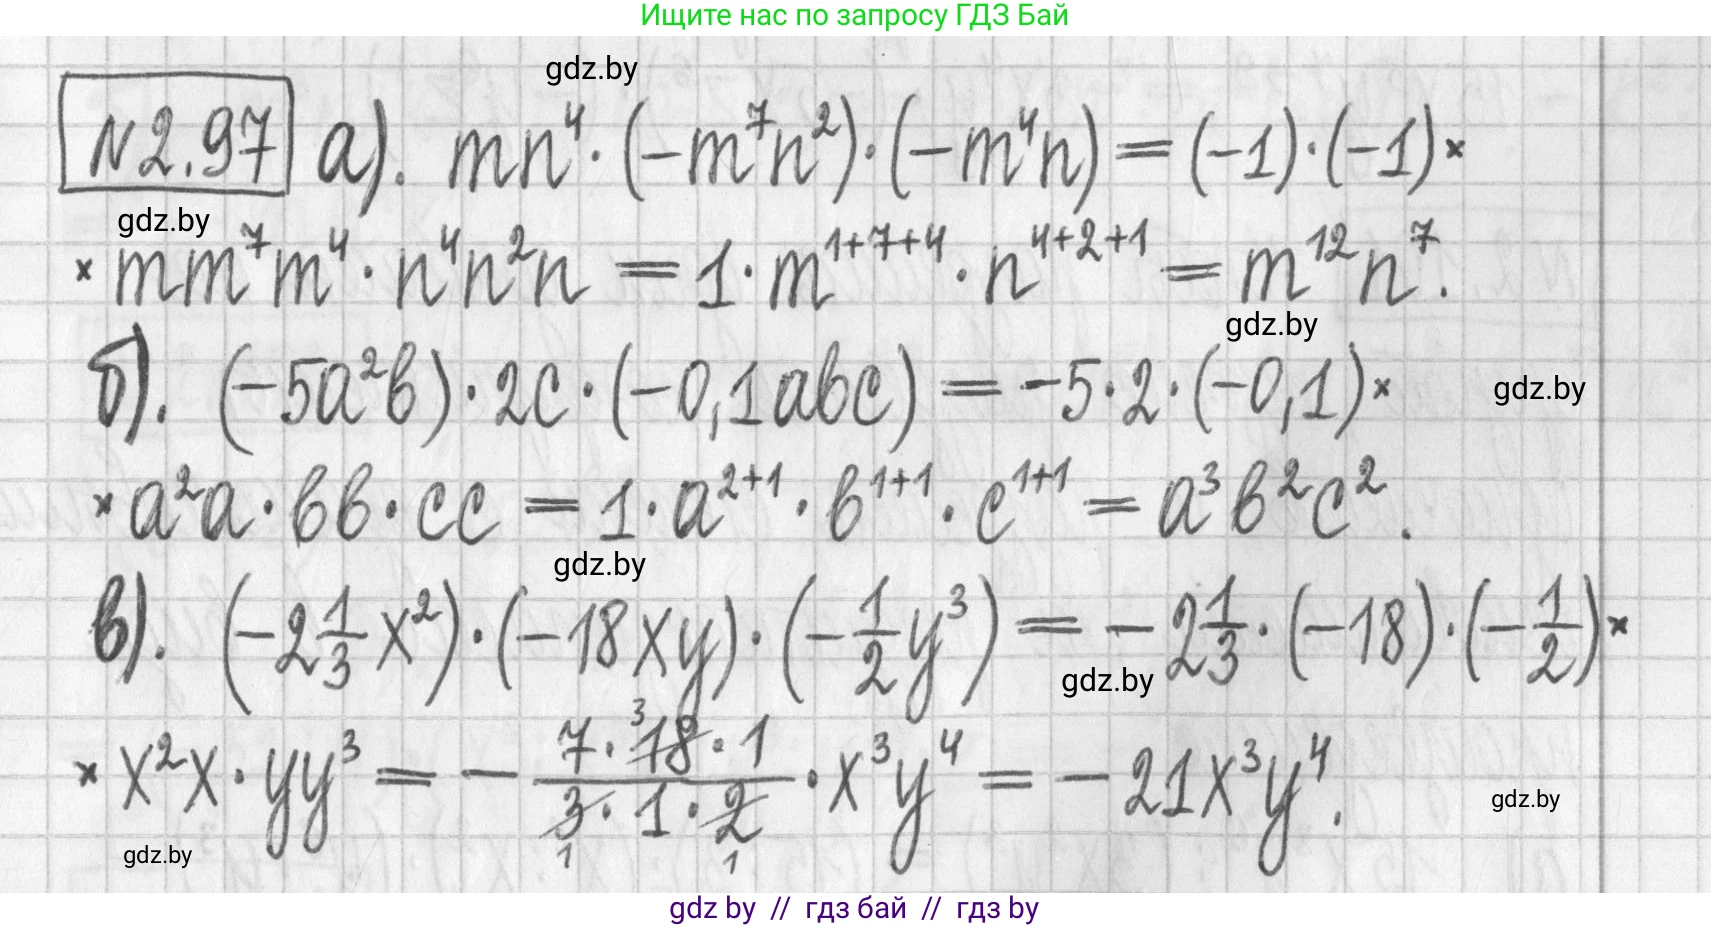 Ищите нас по запросу ГДЗ Бай
gdz.by
№2.97 а). mn⁴·(−m⁷n²)·(−m⁴n) = (−1)·(−1)×
gdz.by
× mm⁷m⁴·n⁴n²n = 1·m¹⁺⁷⁺⁴·n⁴⁺²⁺¹ = m¹²n⁷.
gdz.by
б). (−5a²b)·2c·(−0,1abc) = −5·2·(−0,1)×
gdz.by
× a²a·bb·cc = 1·a²⁺¹·b¹⁺¹·c¹⁺¹ = a³b²c².
gdz.by
в). (−2 1/3 x²)·(−18xy)·(−1/2 y³) = −2 1/3·(−18)·(−1/2)×
gdz.by
× x²x·yy³ = − (7·18³·1)/(3₁·1·2₁)·x³y⁴ = −21x³y⁴.
gdz.by
gdz.by
gdz by // гдз бай // гдз by